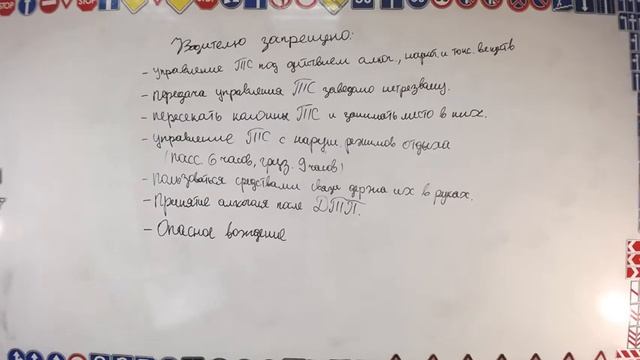 Водителю запрещено:
- управление ТС под действием алког., наркот. и токс. веществ
- передача управления ТС заведомо нетрезвому.
- пересекать колонны ТС и занимать место в них.
- управление ТС с наруш. режимов отдыха
(пасс. 6 часов, груз. 9 часов)
- Пользоваться средствами связи держа их в руках.
- Принятие алкоголя после ДТП.
- Опасное вождение
STOP
STOP
STOP